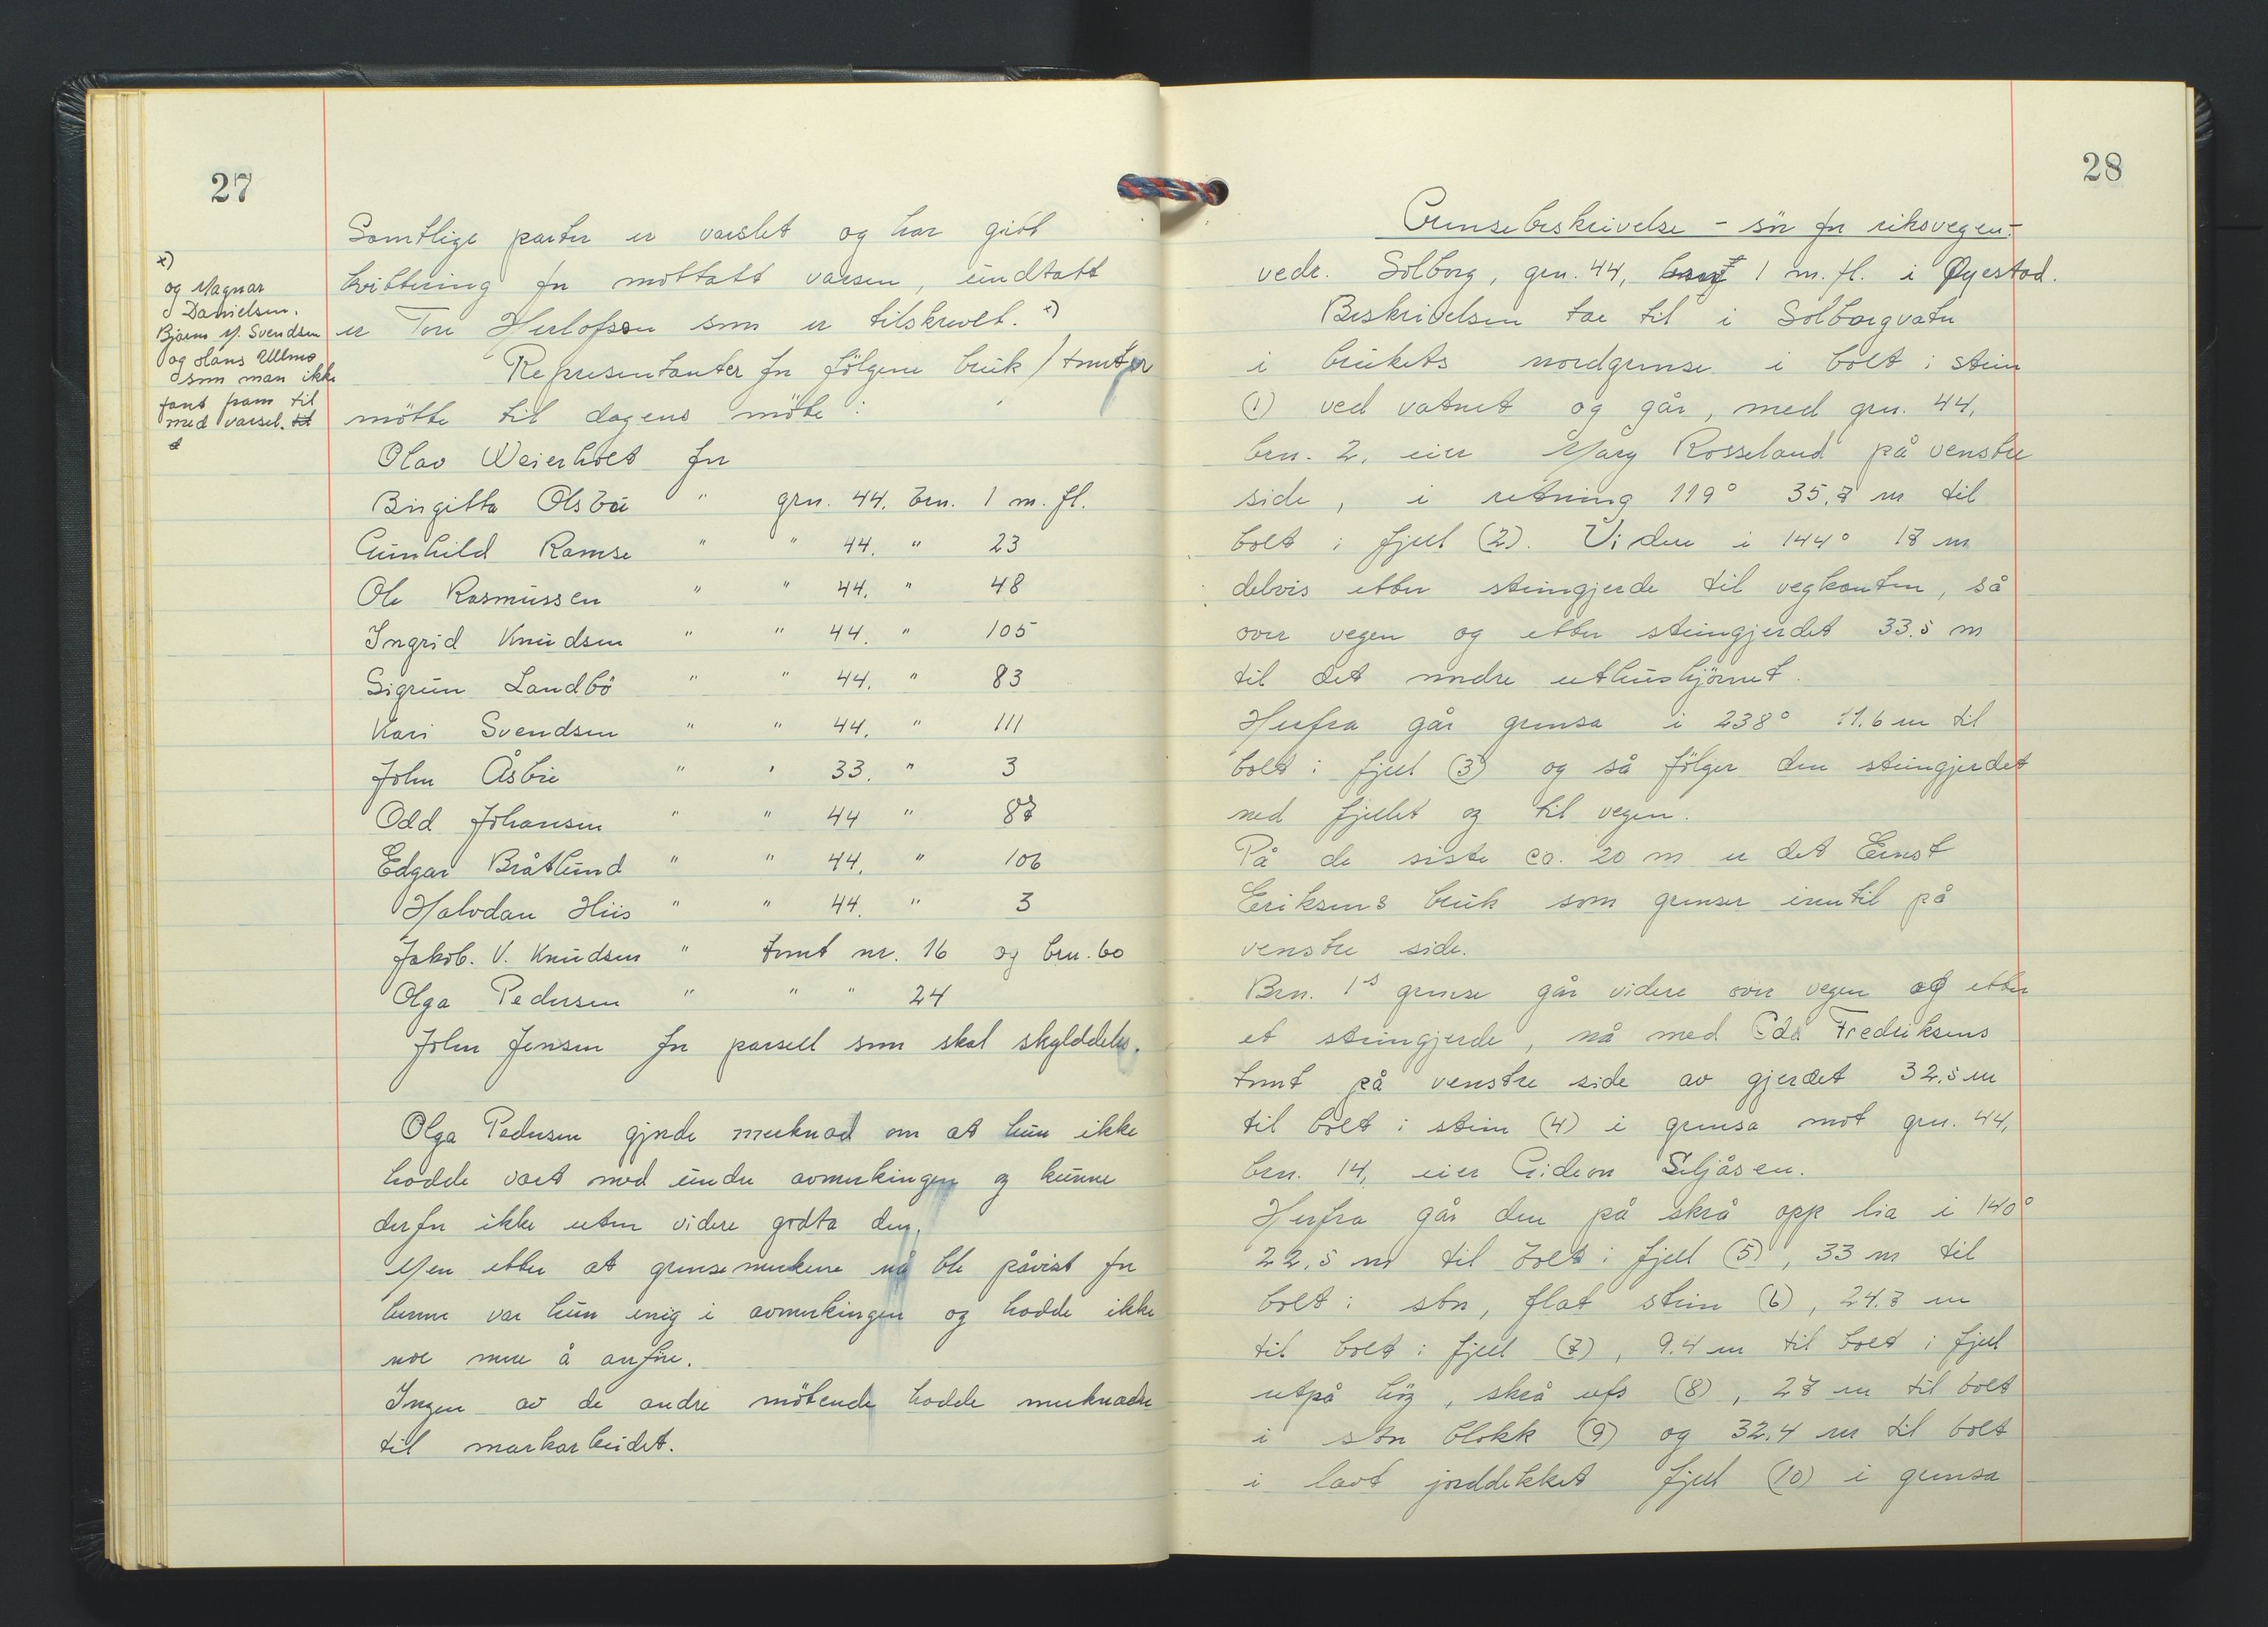 27
Samtlige parter er varslet og har gitt
kvittering for mottatt varsen, undtatt
er Tore Herlofson som er tilskrevet. x)
x)
og Magnar
Danielsen.
Bjarne M. Svendsen
og Hans Ullmo
som man ikke
fant fram til
med varsel.
Representanter for følgene bruk / tomter
møtte til dagens møte:
Olav Weierholt for
Birgitta Olsbu " grn. 44. brn. 1 m. fl.
Gunhild Ramse " " 44. " 23
Ole Rasmussen " " 44. " 48
Ingrid Knudsen " " 44. " 105
Sigrun Landbö " " 44. " 83
Kari Svendsen " " 44. " 111
John Åsbie " " 33. " 3
Odd Johansen " " 44 " 87
Edgar Bråtlund " " 44. " 106
Halvdan Hiis " " 44. " 3
Jakob. V. Knudsen " tomt nr. 16 og brn. 60
Olga Pedersen " " " 24
John Jensen for parsell som skal skylddeles.
Olga Pedersen gjorde merknad om at hun ikke
hadde vært med under avmerkingen og kunne
derfor ikke uten videre godta den.
Men etter at grensemerkene nå ble påvist for
henne var hun enig i avmerkingen og hadde ikke
noe mere å anføre.
Ingen av de andre møtende hadde merknader
til markarbeidet.
28
Grensebeskrivelse - sør for riksvegen -
vedr. Solborg, grn. 44, 1 m. fl. i Øyestad.
Beskrivelsen tar til i Solborgvatn
i brukets nordgrense i bolt i stein
(1) ved vatnet og går, med grn. 44,
brn. 2, eier Mary Rosseland på venstre
side, i retning 119° 35,7 m til
bolt i fjell (2). Videre i 144° 17 m
delvis etter steingjerde til vegkanten, så
over vegen og etter steingjerdet 33.5 m
til det nordre uthushjørnet.
Herfra går grensa i 238° 11.6 m til
bolt i fjell (3) og så følger den steingjerdet
ned fjellet og til vegen.
På de siste ca. 20 m er det Ernst
Eriksens bruk som grenser inntil på
venstre side.
Brn. 1s grense går videre over vegen og etter
et steingjerde, nå med Oda Fredriksens
tomt på venstre side av gjerdet 32,5 m
til bolt i stein (4) i grensa mot grn. 44,
brn. 14, eier Gideon Seljåsen.
Herfra går den på skrå opp lia i 140°
22,5 m til bolt i fjell (5), 33 m til
bolt i stor, flat stein (6), 24.7 m
til bolt i fjell (7), 9.4 m til bolt i fjell
utpå høg, skrå ufs (8), 27 m til bolt
i stor blokk (9) og 32,4 m til bolt
i lavt jorddekket fjell (10) i grensa